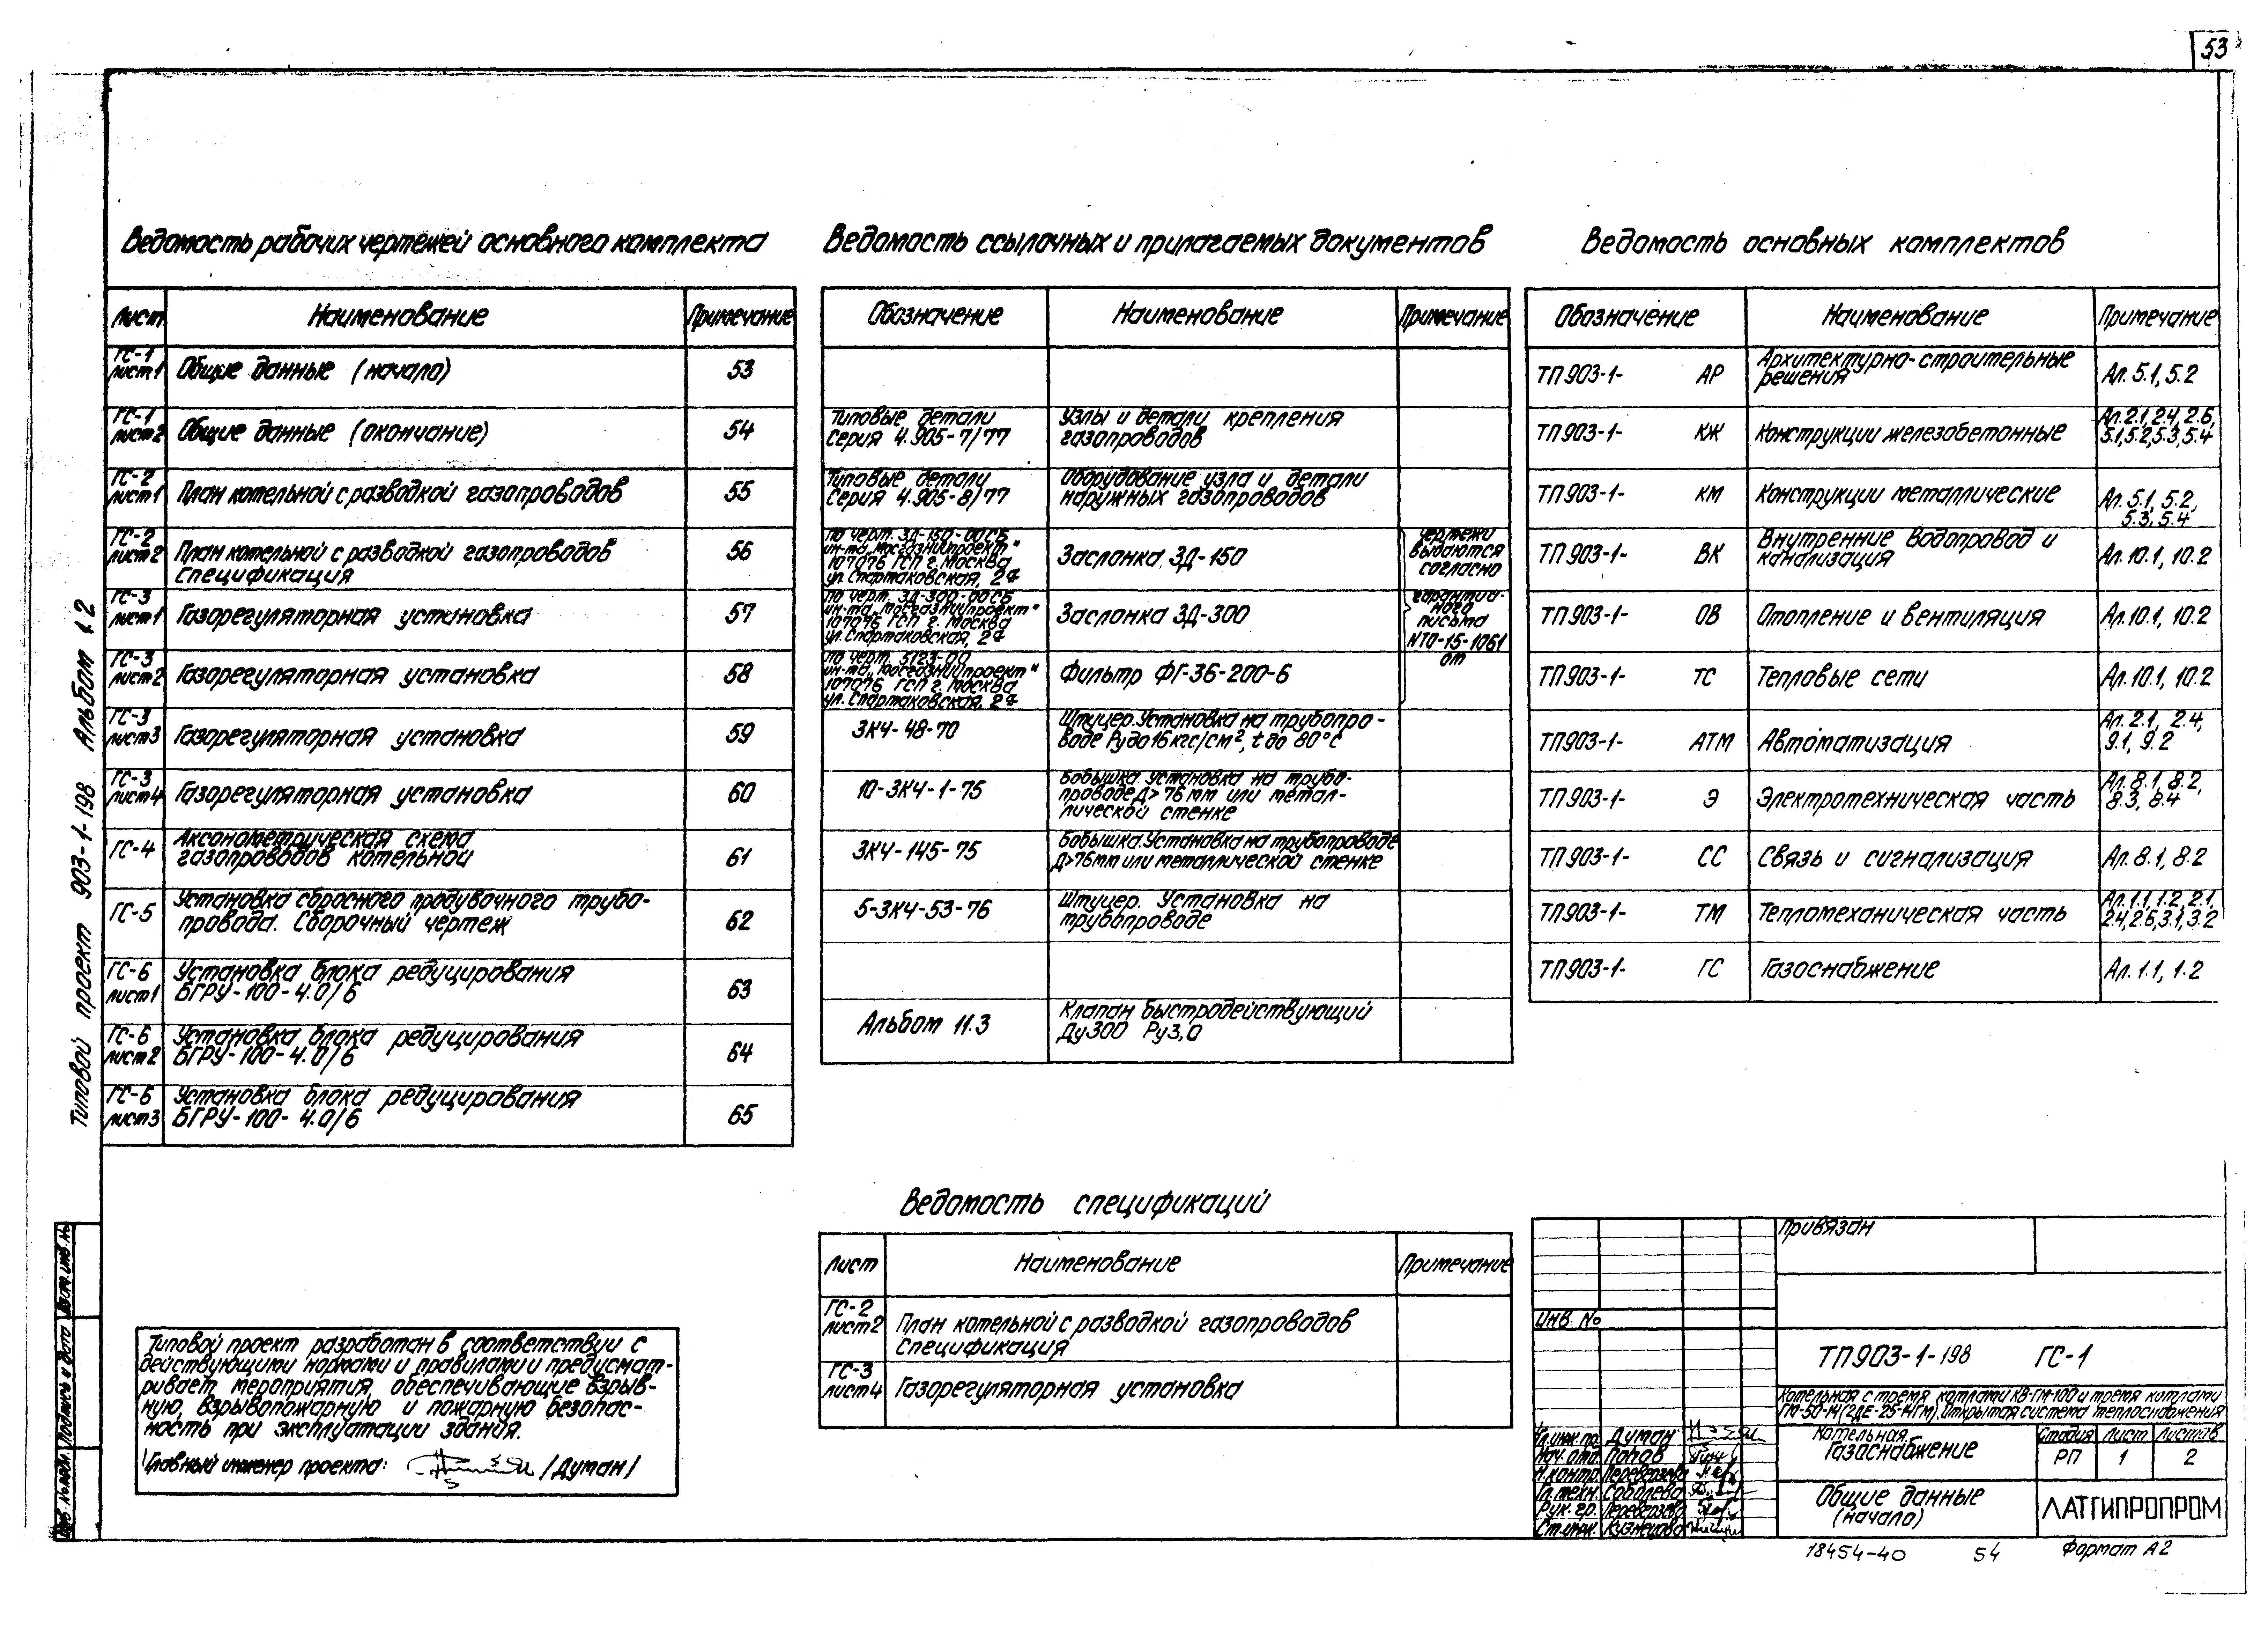 53
Типовой проект 903-1-198 Альбом 1.2
Ведомость рабочих чертежей основного комплекта
Лист Наименование Примечание
ГС-1 лист 1 Общие данные (начало) 53
ГС-1 лист 2 Общие данные (окончание) 54
ГС-2 лист 1 План котельной с разводкой газопроводов 55
ГС-2 лист 2 План котельной с разводкой газопроводов 56
Спецификация
ГС-3 лист 1 Газорегуляторная установка 57
ГС-3 лист 2 Газорегуляторная установка 58
ГС-3 лист 3 Газорегуляторная установка 59
ГС-3 лист 4 Газорегуляторная установка 60
ГС-4 Аксонометрическая схема
газопроводов котельной 61
ГС-5 Установка сбросного продувочного трубо-
провода. Сборочный чертеж 62
ГС-6 лист 1 Установка блока редуцирования
БГРУ-100-4.0/6 63
ГС-6 лист 2 Установка блока редуцирования
БГРУ-100-4.0/6 64
ГС-6 лист 3 Установка блока редуцирования
БГРУ-100-4.0/6 65
Ведомость ссылочных и прилагаемых документов
Обозначение Наименование Примечание
Типовые детали Узлы и детали крепления
Серия 4.905-7/77 газопроводов
Типовые детали Оборудование узла и детали
Серия 4.905-8/77 наружных газопроводов
По черт. ЗД-150-00СБ
ин-та „Мосгазниипроект"
107076 ГСП г. Москва
ул. Спартаковская, 2а
Заслонка ЗД-150
По черт. ЗД-300-00СБ
ин-та „Мосгазниипроект"
107076 ГСП г. Москва
ул. Спартаковская, 2а
Заслонка ЗД-300
По черт. 5123-00
ин-та „Мосгазниипроект"
107076 ГСП г. Москва
ул. Спартаковская, 2а
Фильтр ФГ-36-200-6
чертежи
выдаются
согласно
гарантий-
ного
письма
NТО-15-1061
от
ЗК4-48-70 Штуцер. Установка на трубопро-
воде Ру до 16 кгс/см², t до 80°С
10-ЗК4-1-75 Бобышка. Установка на трубо-
проводе Д>76мм или метал-
лической стенке
ЗК4-145-75 Бобышка. Установка на трубопроводе
Д>76мм или металлической стенке
5-ЗК4-53-76 Штуцер. Установка на
трубопроводе
Альбом 11.3 Клапан быстродействующий
Ду300 Ру3,0
Ведомость основных комплектов
Обозначение Наименование Примечание
ТП903-1- АР Архитектурно-строительные
решения Ал. 5.1, 5.2
ТП903-1- КЖ Конструкции железобетонные Ал. 2.1, 2.4, 2.6,
5.1, 5.2, 5.3, 5.4
ТП903-1- КМ Конструкции металлические Ал. 5.1, 5.2,
5.3, 5.4
ТП903-1- ВК Внутренние водопровод и
канализация Ал. 10.1, 10.2
ТП903-1- ОВ Отопление и вентиляция Ал. 10.1, 10.2
ТП903-1- ТС Тепловые сети Ал. 10.1, 10.2
ТП903-1- АТМ Автоматизация Ал. 2.1, 2.4,
9.1, 9.2
ТП903-1- Э Электротехническая часть Ал. 8.1, 8.2,
8.3, 8.4
ТП903-1- СС Связь и сигнализация Ал. 8.1, 8.2
ТП903-1- ТМ Тепломеханическая часть Ал. 1.1, 1.2, 2.1,
2.4, 2.6, 3.1, 3.2
ТП903-1- ГС Газоснабжение Ал. 1.1, 1.2
Ведомость спецификаций
Лист Наименование Примечание
ГС-2 лист 2 План котельной с разводкой газопроводов
Спецификация
ГС-3 лист 4 Газорегуляторная установка
Типовой проект разработан в соответствии с
действующими нормами и правилами и предусмат-
ривает мероприятия, обеспечивающие взрыв-
ную, взрывопожарную и пожарную безопас-
ность при эксплуатации здания.
Главный инженер проекта: /Думан/
Инв. № подл. Подпись и дата Взам. инв. №
Привязан
Инв. №
ТП903-1-198 ГС-1
Котельная с тремя котлами КВ-ГМ-100 и тремя котлами
ГМ-50-14 (2ДЕ-25-14ГМ). Открытая система теплоснабжения
Гл. инж. пр. Думан
Нач. отд. Попов
Н. контр. Переверзева
Гл. техн. Соболева
Рук. гр. Переверзева
Ст. инж. Кузнецова
Котельная
Газоснабжение
Стадия Лист Листов
РП 1 2
Общие данные
(начало)
ЛАТГИПРОПРОМ
18454-40 54 Формат А2